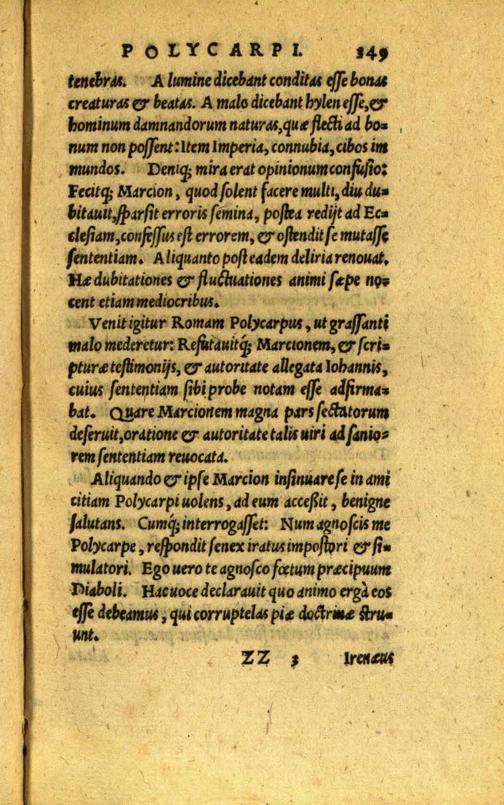 POLYCARPI. 349
tenebras. A lumine dicebant conditas esse bonas
creaturas & beatas. A malo dicebant hylen esse,&
hominum damnandorum naturas,quæ flecti ad bo-
num non possent:Item Imperia, connubia, cibos im
mundos. Deniq; mira erat opinionum confusio:
Fecitq; Marcion, quod solent facere multi, diu du-
bitauit,sparsit erroris semina, postea redijt ad Ec-
clesiam,confessus est errorem, & ostendit se mutasse
sententiam. Aliquanto post eadem deliria renouat.
Hæ dubitationes & fluctuationes animi sæpe no-
cent etiam mediocribus.
Venit igitur Romam Polycarpus, ut grassanti
malo mederetur: Refutauitq; Marcionem, & scri-
pturæ testimonijs, & autoritate allegata Iohannis,
cuius sententiam sibi probe notam esse adfirma-
bat. Quare Marcionem magna pars sectatorum
deseruit,oratione & autoritate talis uiri ad sanio-
rem sententiam reuocata.
Aliquando & ipse Marcion insinuare se in ami
citiam Polycarpi uolens, ad eum acceßit, benigne
salutans. Cumq; interrogasset: Num agnoscis me
Polycarpe, respondit senex iratus impostori & si-
mulatori. Ego uero te agnosco fœtum præcipuum
Diaboli. Hac uoce declarauit quo animo ergà eos
esse debeamus, qui corruptelas piæ doctrinæ stru-
unt.
ZZ 3 Irenæus